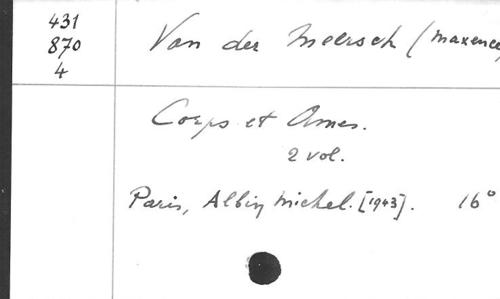 431
870
4
Van der Meersch (Maxence
Corps et Ames.
2 vol.
Paris, Albin Michel. [1943]. 16°